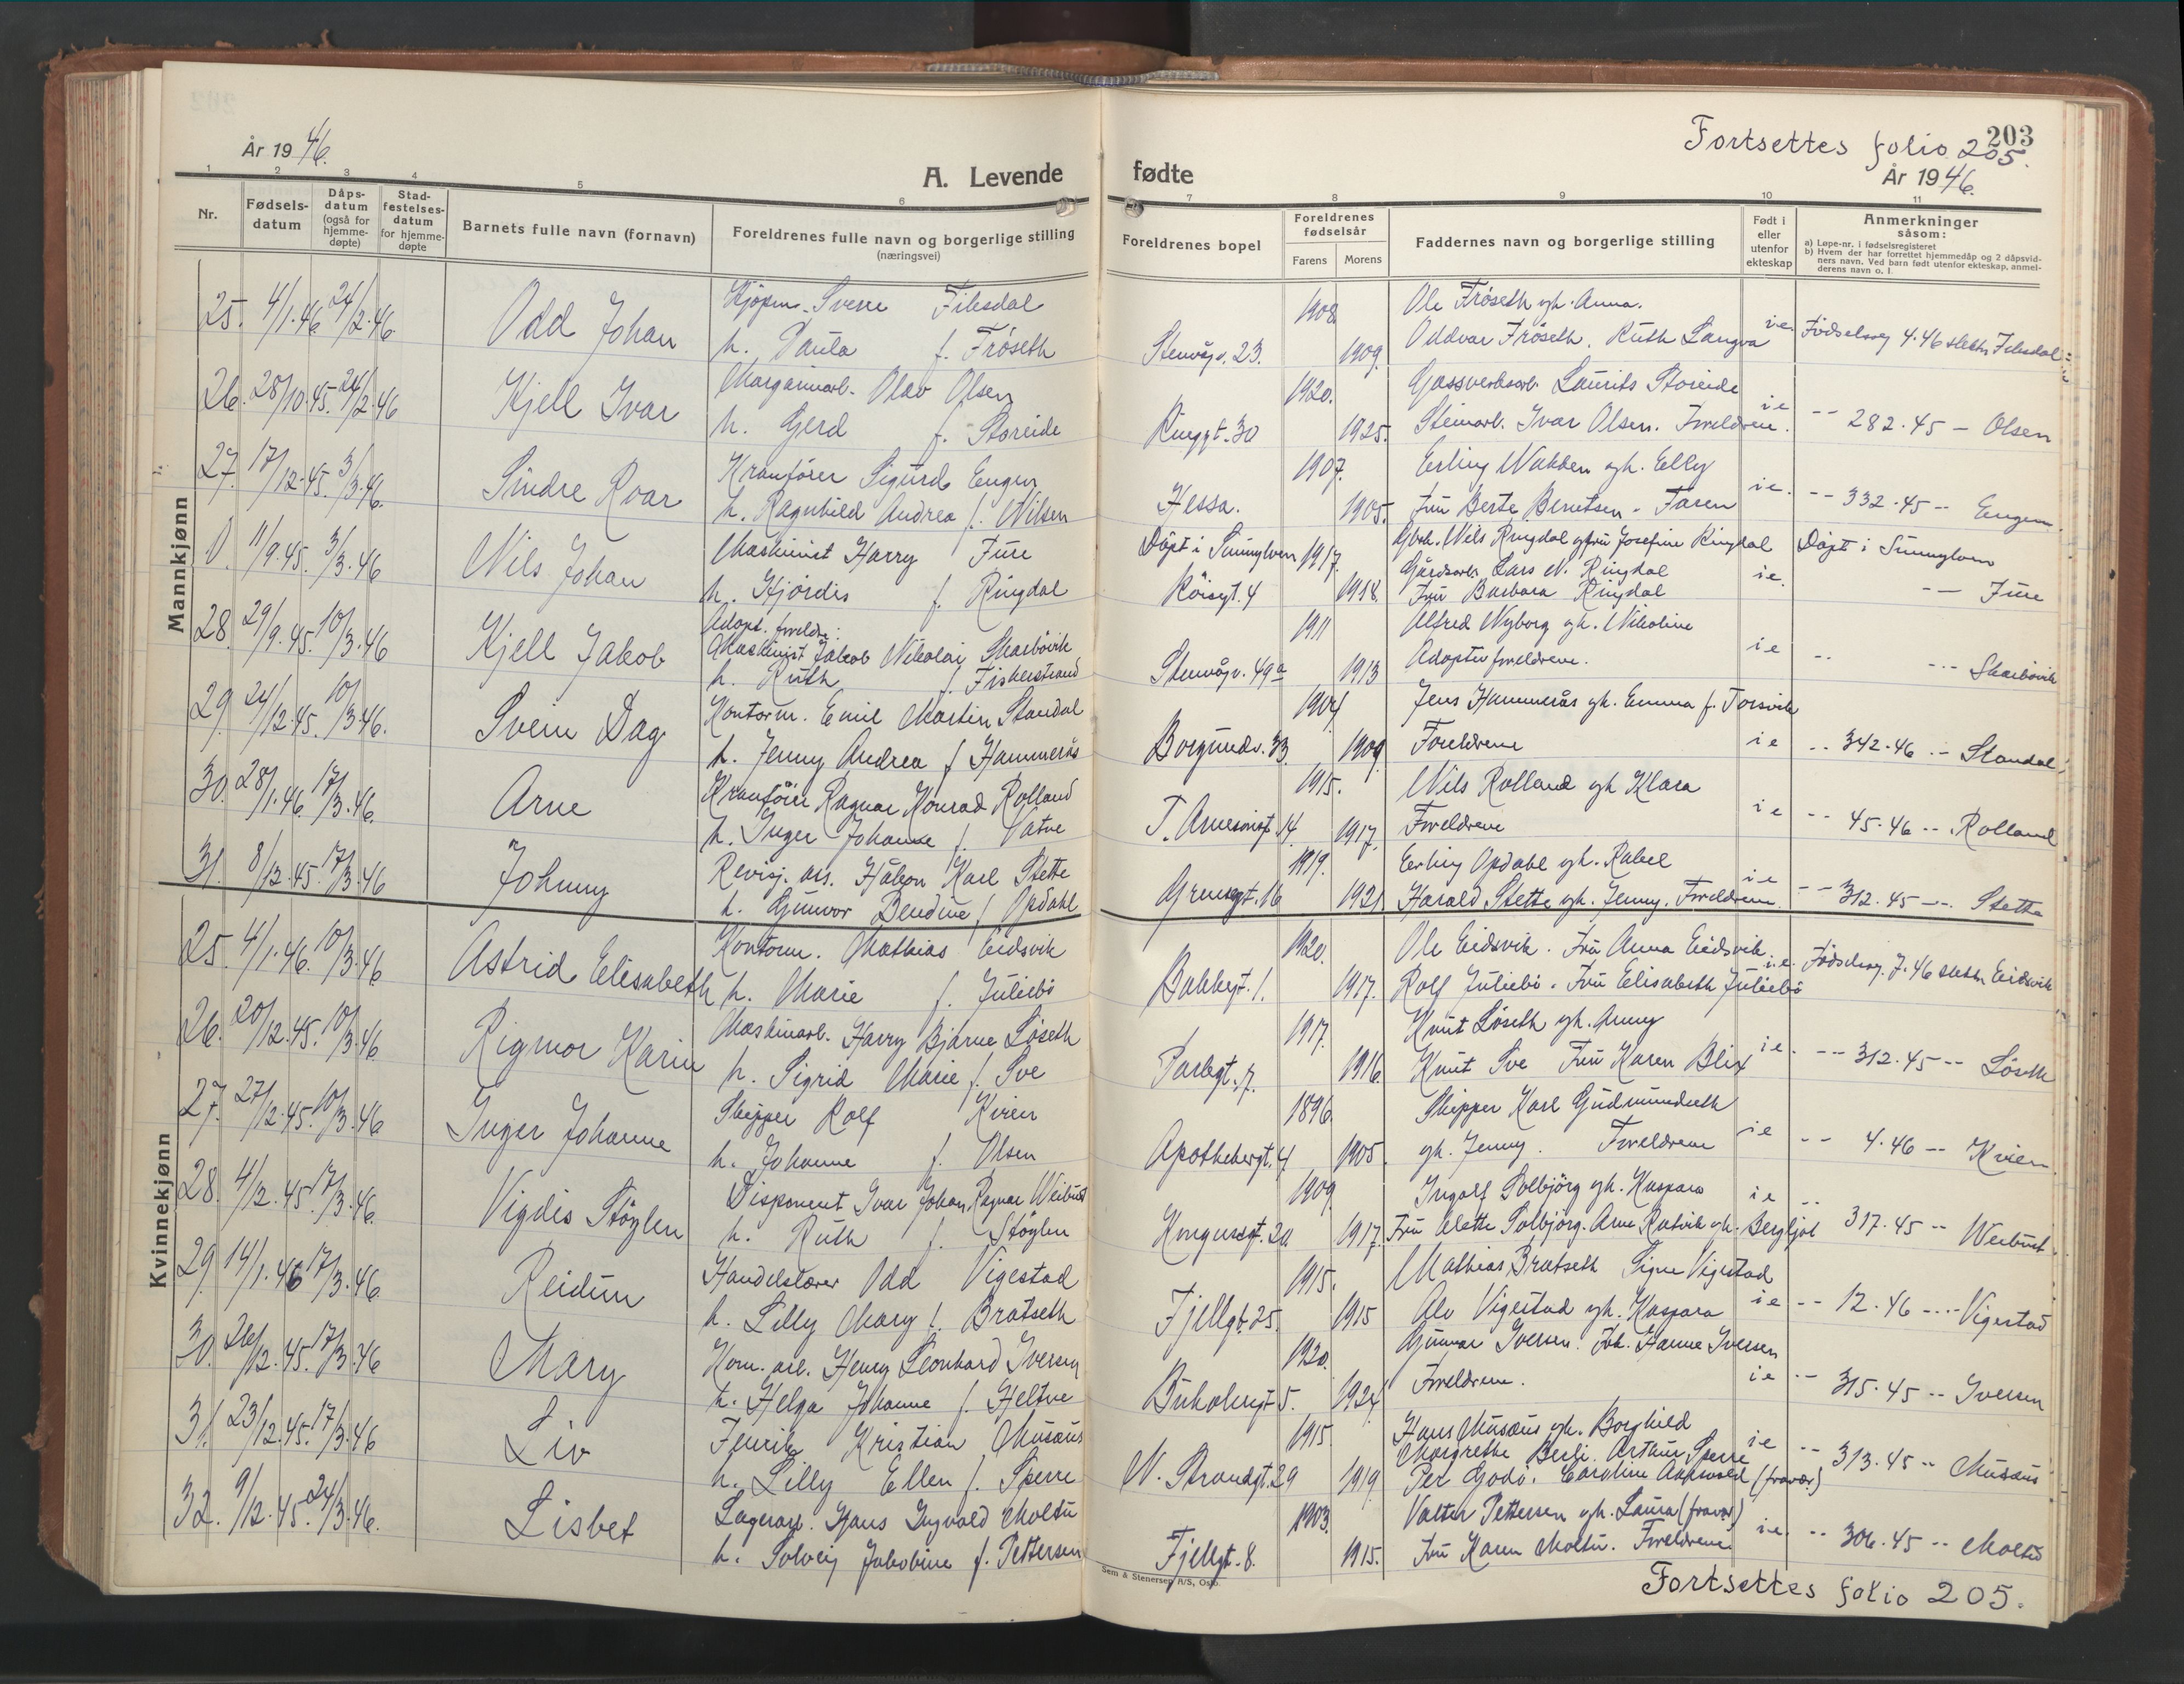 Fortsettes folio 205.
203
År 1946.
A. Levende fødte
År 1946.
1 2 3 4 5 6 7 8 9 10 11
Nr.
Fødsels-datum
Dåps-datum (også for hjemme-døpte)
Stad-festelses-datum for hjemme-døpte
Barnets fulle navn (fornavn)
Foreldrenes fulle navn og borgerlige stilling (næringsvei)
Foreldrenes bopel
Foreldrenes fødselsår
Farens Morens
Faddernes navn og borgerlige stilling
Født i eller utenfor ekteskap
Anmerkninger såsom:
a) Løpe-nr. i fødselsregisteret
b) Hvem der har forrettet hjemmedåp og 2 dåpsvid-
ners navn. Ved barn født utenfor ekteskap, anmel-
derens navn o. l.
Mannkjønn
25. 4/1.46 24/2.46 Odd Johan Kjøpm. Sverre Fiksdal 1908 Ole Frøseth gh. Anna.
h. Paula f. Frøseth Stenvågv. 23. 1909. Oddvar Frøseth. Ruth Langva i.e. Fødselsreg 4.46 slektsn Fiksdal
26. 28/10.45. 24/2.46 Kjell Ivar Margarinarb. Olav Olsen 1920. Gassverksarb. Laurits Storeide
h. Gerd f. Storeide 30 1925. Steinarb. Ivar Olsen. Foreldrene. i e -- 282.45 - Olsen
27. 17/12.45. 3/3.46. Sindre Roar Kranfører Sigurd Engen 1907. Erling Nakken gh. Elly
h. Ragnhild Andrea f. Nilsen Hessa. 1905. Fru Berte Berntsen - Faren i.e. -- 332.45 -- Engen.
0. 11/9.45. 3/3.46 Nils Johan Maskinist Harry Fure Døpt i Sunnylven 1917. Gbrk. Nils Ringdal gfru Josefine Ringdal Døpt i Sunnylven
h. Hjørdis f. Ringdal Røisgt. 4 1918. Gårdsarb. Lars N. Ringdal i.e. -- Fure
Fru Barbara Ringdal
28. 29/9.45. 10/3.46 Kjell Jakob Adopt. foreldre: 1911 Alfred Nyborg gh. Nikoline
Maskinist Jakob Nikolai Skarbövik
h. Ruth f. Fiskerstrand Stenvågv. 49a 1913 Adoptivforeldrene. i e -- -- Skarbövik
29. 24/12.45. 10/3.46. Svein Dag Kontorm. Emil Martin Standal 1904 Jens Hammerås gh. Emma f. Torsvik
h. Jenny Andrea f Hammerås Borgundv. 33. 1909. Foreldrene i e -- 342.46 -- Standal.
30. 28/1.46. 17/3.46. Arne Kranfører Ragnar Konrad Rolland 1915. Nils Rolland gh Klara
h. Inger Johanne f. Vatne 14. 1917. Foreldrene i e -- 45.46 -- Rolland
31. 8/12.45. 17/3.46 Johnny Revisj. ass. Håkon Karl Stette 1919. Erling Opdahl gh. Rakel
h. Gunvor Bendine f. Opdahl Grensegt. 16 1921 Harald Stette gh. Jenny. Foreldrene. i e -- 312.45 --. Stette
Kvinnekjønn
25. 4/1.46. 10/3.46 Astrid Elisabeth Kontorm. Mathias Eidsvik 1920. Ole Eidsvik. Fru Anna Eidsvik
h. Marie f. Juliebö Bakkegt. 1. 1917. Rolf Juliebö. Fru Elisabeth Juliebö i.e. Fødselsreg. 7.46 slektsn Eidsvik
26. 20/12.45. 10/3.46 Rigmor Karin Maskinarb. Harry Bjarne Löseth 1917. Knut Löseth gh. Anny
h. Sigrid Marie f. Sve Parkgt. 7. 1916. Knut Sve Fru Karen Blix i.e. -- 312.45 -- Löseth
27. 27/12.45. 10/3.46 Inger Johanne Skipper Rolf Kvien 1896. Skipper Karl Gudmundseth
h. Johanne f. Olsen Apothekergt. 4 1905. gh. Jenny. Foreldrene i e -- 4.46 -- Kvien.
28. 4/12.45. 17/3.46. Vigdis Støylen Disponent Ivar Johan Ragnar Weibust 1909 Ingolf Solbjörg gh. Kaspara
h. Ruth f. Støylen Kongensgt. 20. 1917. Fru Alette Solbjörg. Arne Ratvik gh. Bergljot i e -- 317.45 -- Weibust.
29. 14/1.46 17/3.46. Reidun Handelslærer Odd Vigestad 1915. Mathias Bratseth Signe Vigestad
h. Lilly Mary f. Bratseth Fjellgt. 25. 1915 Alv Vigestad gh. Kaspara i e -- 12.46 -- Vigestad
30. 26/12.45. 17/3.46 Mary Kom. arb. Henry Leonhard Iversen 1920. Gunnar Iversen. Frk. Hanne Iversen
h. Helga Johanne f. Heltne Buholmgt 5. 1924 Foreldrene. i e -- 315.45 -- Iversen
31. 23/12.45. 17/3.46 Liv Kristian Musæus 1915. Hans Musæus gh. Borghild
Margrethe Berli. Arthur Sperre
h. Lilly Ellen f. Sperre N. Strandgt. 29 1919 Per Godö. Caroline (fravær) i e -- 313.45 -- Musæus
32. 9/12.45. 24/3.46. Lisbet Lagerarb. Hans Ingvald Moltu 1903. Valter Pettersen gh. Laura (fravær)
h. Solveig Jakobine f. Pettersen Fjellgt. 8. 1915. Fru Karen Moltu. Foreldrene i.e. -- 306.45 -- Moltu
Sem & Stenersen A/S, Oslo.
Fortsettes folio 205.